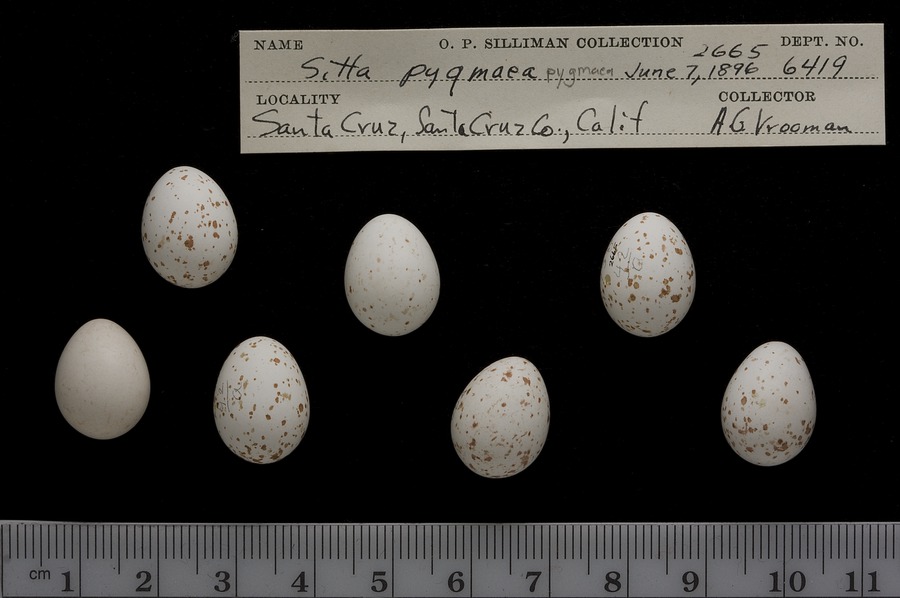 NAME O. P. SILLIMAN COLLECTION 2665 DEPT. NO.
Sitta pygmaea pygmaea June 7, 1896 6419
LOCALITY COLLECTOR
Santa Cruz, Santa Cruz Co., Calif A G Vrooman
cm 1 2 3 4 5 6 7 8 9 10 11